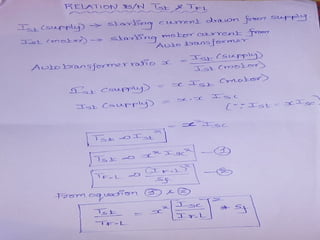 RELATION B/N Tst & TF.L
Ist (supply) → starting current drawn from supply
Ist (motor) → starting motor current from
Autotransformer
Autotransformer ratio x = Ist (supply) / Ist (motor)
Ist (supply) = x Ist (motor)
Ist (supply) = x . x Isc (∵ Ist = x Isc)
= x² Isc
Tst ∝ Ist²
Tst ∝ x² Isc² — ①
TF.L ∝ (IF.L)² / Sf — ②
From equation ① & ②
Tst / TF.L = x² [Isc / IF.L]² * Sf